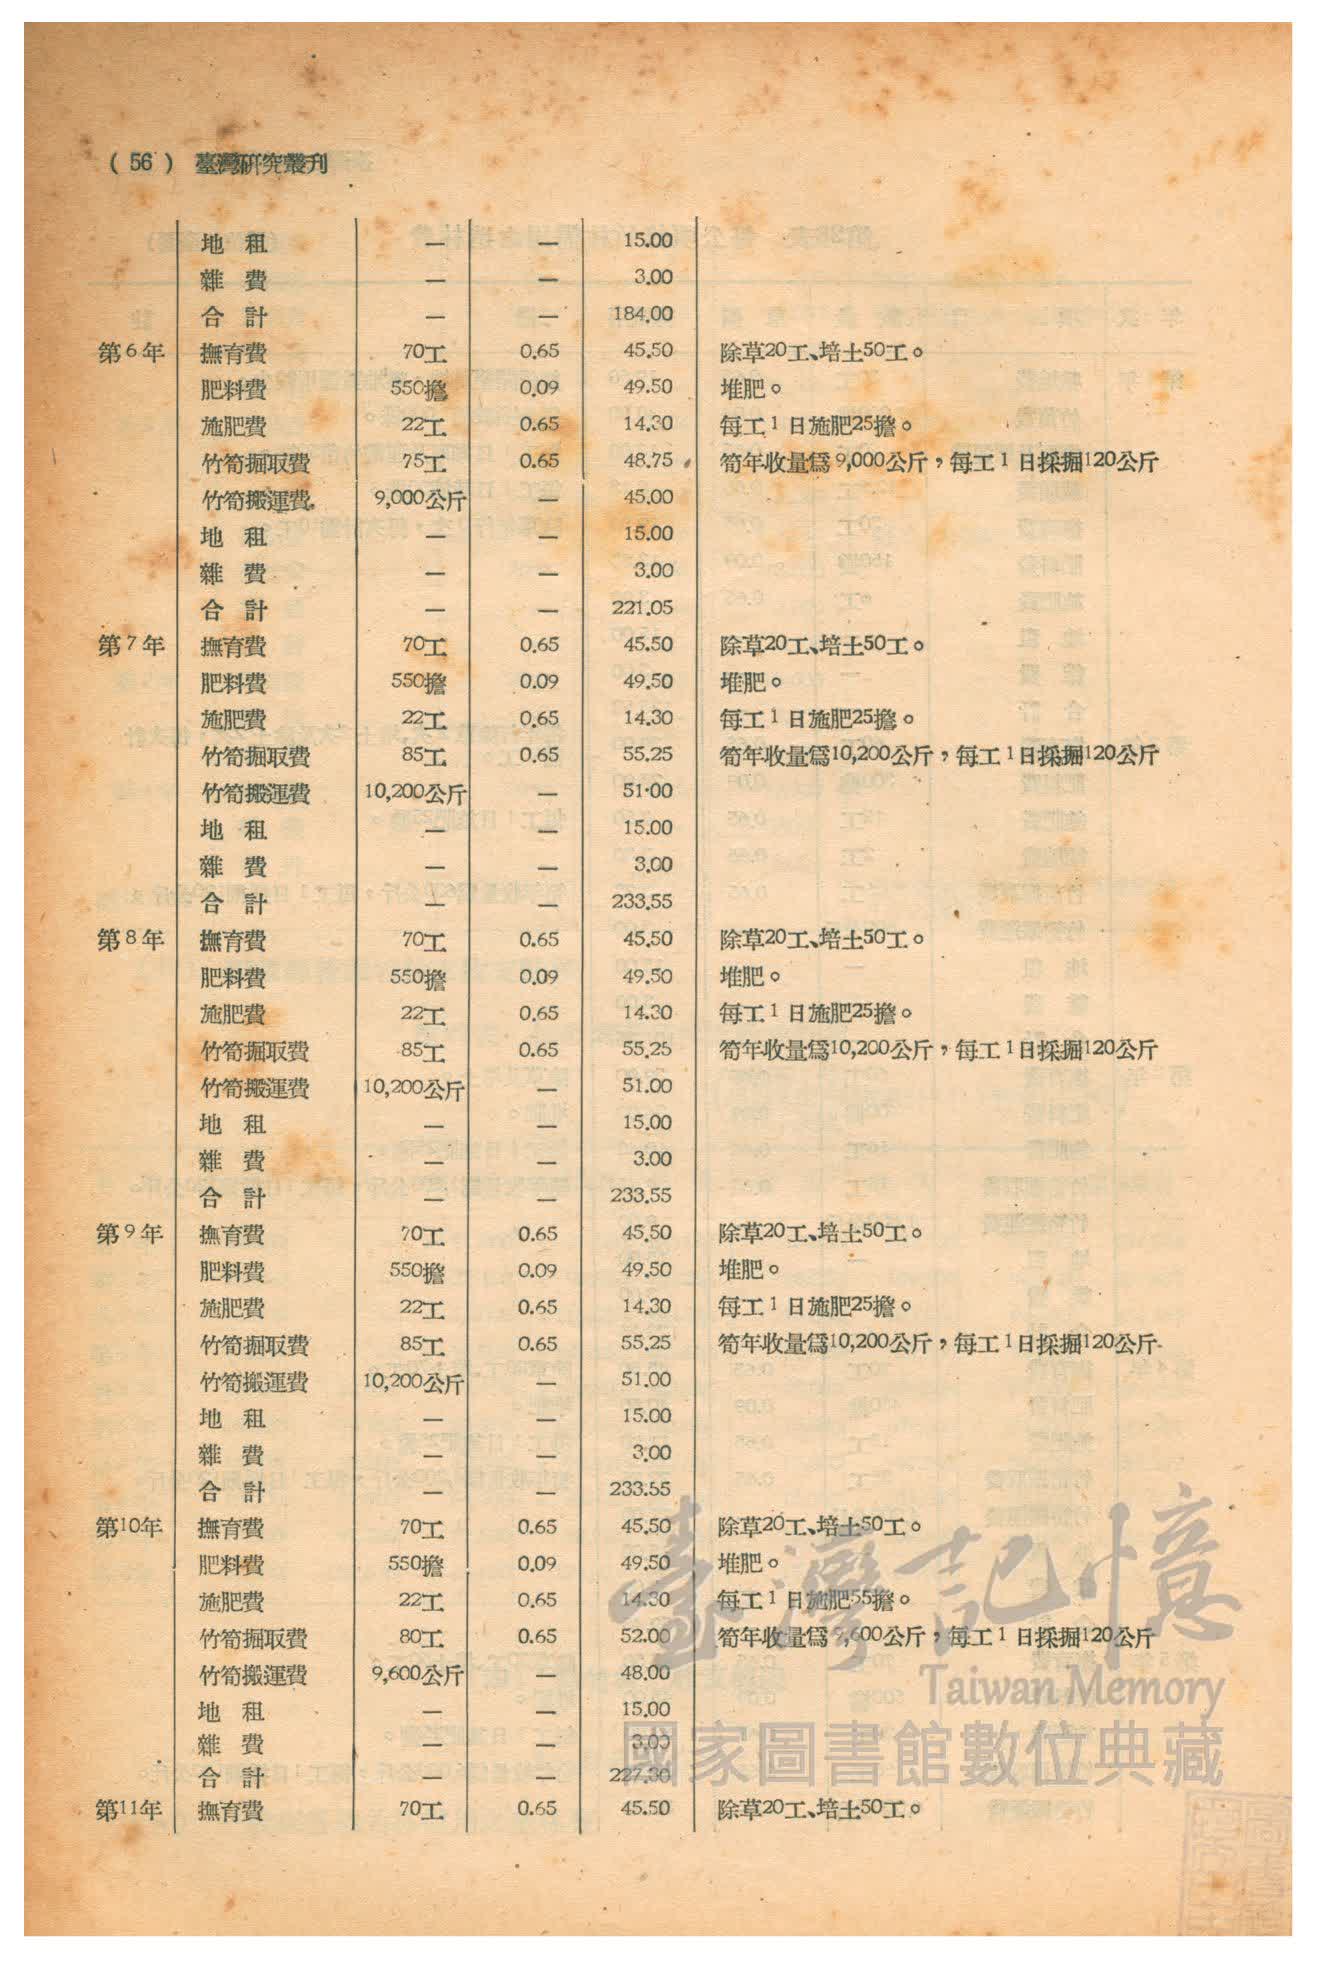 ( 56 ) 臺灣研究叢刊
地 租 — — 15.00
雜 費 — — 3.00
合 計 — — 184.00
第6年 撫育費 70工 0.65 45.50 除草20工、培土50工。
肥料費 550擔 0.09 49.50 堆肥。
施肥費 22工 0.65 14.30 每工1日施肥25擔。
竹筍掘取費 75工 0.65 48.75 筍年收量爲9,000公斤，每工1日採掘120公斤
竹筍搬運費 9,000公斤 — 45.00
地 租 — — 15.00
雜 費 — — 3.00
合 計 — — 221.05
第7年 撫育費 70工 0.65 45.50 除草20工、培土50工。
肥料費 550擔 0.09 49.50 堆肥。
施肥費 22工 0.65 14.30 每工1日施肥25擔。
竹筍掘取費 85工 0.65 55.25 筍年收量爲10,200公斤，每工1日採掘120公斤
竹筍搬運費 10,200公斤 — 51·00
地 租 — — 15.00
雜 費 — — 3.00
合 計 — — 233.55
第8年 撫育費 70工 0.65 45.50 除草20工、培土50工。
肥料費 550擔 0.09 49.50 堆肥。
施肥費 22工 0.65 14.30 每工1日施肥25擔。
竹筍掘取費 85工 0.65 55.25 筍年收量爲10,200公斤，每工1日採掘120公斤
竹筍搬運費 10,200公斤 — 51.00
地 租 — — 15.00
雜 費 — — 3.00
合 計 — — 233.55
第9年 撫育費 70工 0.65 45.50 除草20工、培土50工。
肥料費 550擔 0.09 49.50 堆肥。
施肥費 22工 0.65 14.30 每工1日施肥25擔。
竹筍掘取費 85工 0.65 55.25 筍年收量爲10,200公斤，每工1日採掘120公斤
竹筍搬運費 10,200公斤 — 51.00
地 租 — — 15.00
雜 費 — — 3.00
合 計 — — 233.55
第10年 撫育費 70工 0.65 45.50 除草20工、培土50工。
肥料費 550擔 0.09 49.50 堆肥。
施肥費 22工 0.65 14.30 每工1日施肥55擔。
竹筍掘取費 80工 0.65 52.00 筍年收量爲9,600公斤，每工1日採掘120公斤
竹筍搬運費 9,600公斤 — 48.00
地 租 — — 15.00
雜 費 — — 3.00
合 計 — — 227.30
第11年 撫育費 70工 0.65 45.50 除草20工、培土50工。
臺灣記憶
Taiwan Memory
國家圖書館數位典藏